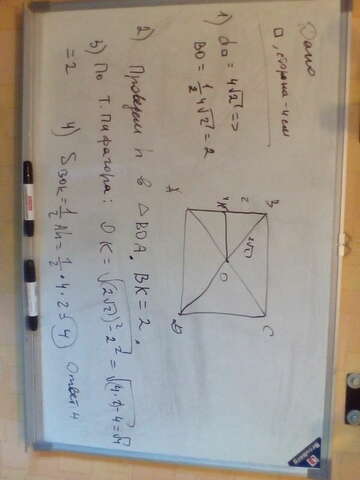 Дано
□, сторона - 4 см
1) d□ = 4√2 =>
BO = 1/2 4√2 = 2
2) Проведем h в △ BOA. BK = 2,
3) По т. Пифагора: OK = √(2√2)² - 2² = √(4·2) - 4 = √4
= 2
4) S BOK = 1/2 Ah = 1/2 · 4 · 2 = 4 Ответ 4
A
K
2
B
2√2
O
D
C